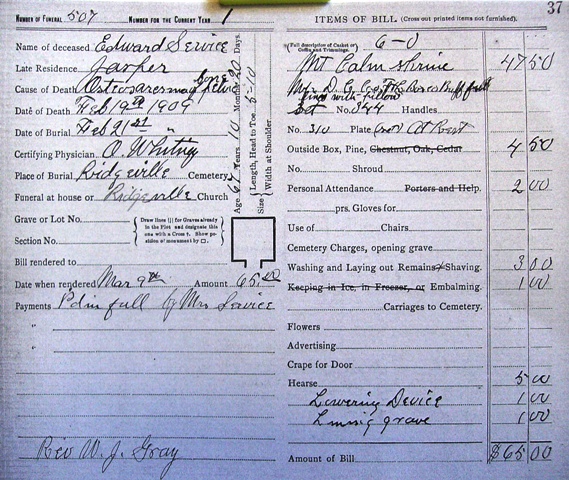 37
NUMBER OF FUNERAL 507 NUMBER FOR THE CURRENT YEAR 1
Name of deceased Edward Service
Late Residence Jasper
Cause of Death Osteosarcoma bone
Date of Death Feb 19th 1909
Date of Burial Feb 21st "
Certifying Physician O. Whitney
Place of Burial Ridgeville Cemetery
Funeral at house or Ridgeville Church
Age 67 Years 10 Months 20 Days
Size { Length, Head to Toe 5-10
Width at Shoulder
Grave or Lot No.
Section No.
{ Draw lines (|) for Graves already in the Plot and designate this one with a Cross †. Show position of monument by □. }
Bill rendered to
Date when rendered Mar 9th Amount 65.00
Payments Pd in full by Mrs Service
"
"
Rev W. J. Gray
ITEMS OF BILL (Cross out printed items not furnished).
(Full description of Casket or Coffin and Trimmings.) 6-0
Mt Calm Shrine 47 50
lined with pillow
Set No. 344 Handles
No. 310 Plate At Rest
Outside Box, Pine, Chestnut, Oak, Cedar 4 50
No. Shroud
Personal Attendance Porters and Help. 2 00
prs. Gloves for
Use of Chairs
Cemetery Charges, opening grave
Washing and Laying out Remains & Shaving. 3 00
Keeping in Ice, in Freezer, or Embalming. 1 00
Carriages to Cemetery.
Flowers
Advertising
Crape for Door
Hearse 5 00
Lowering Device 1 00
Lining grave 1 00
Amount of Bill $65 00